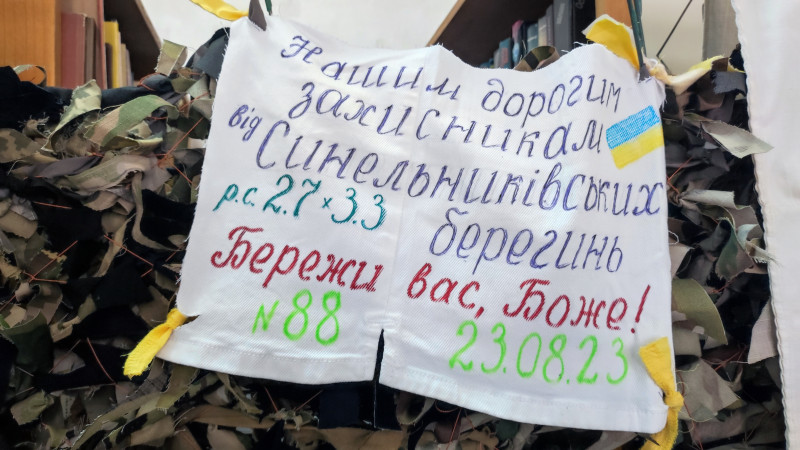 Нашим дорогим
захисникам
від Синельниківських
берегинь
р.с. 2.7×3.3
Бережи вас, Боже!
N 88
23.08.23